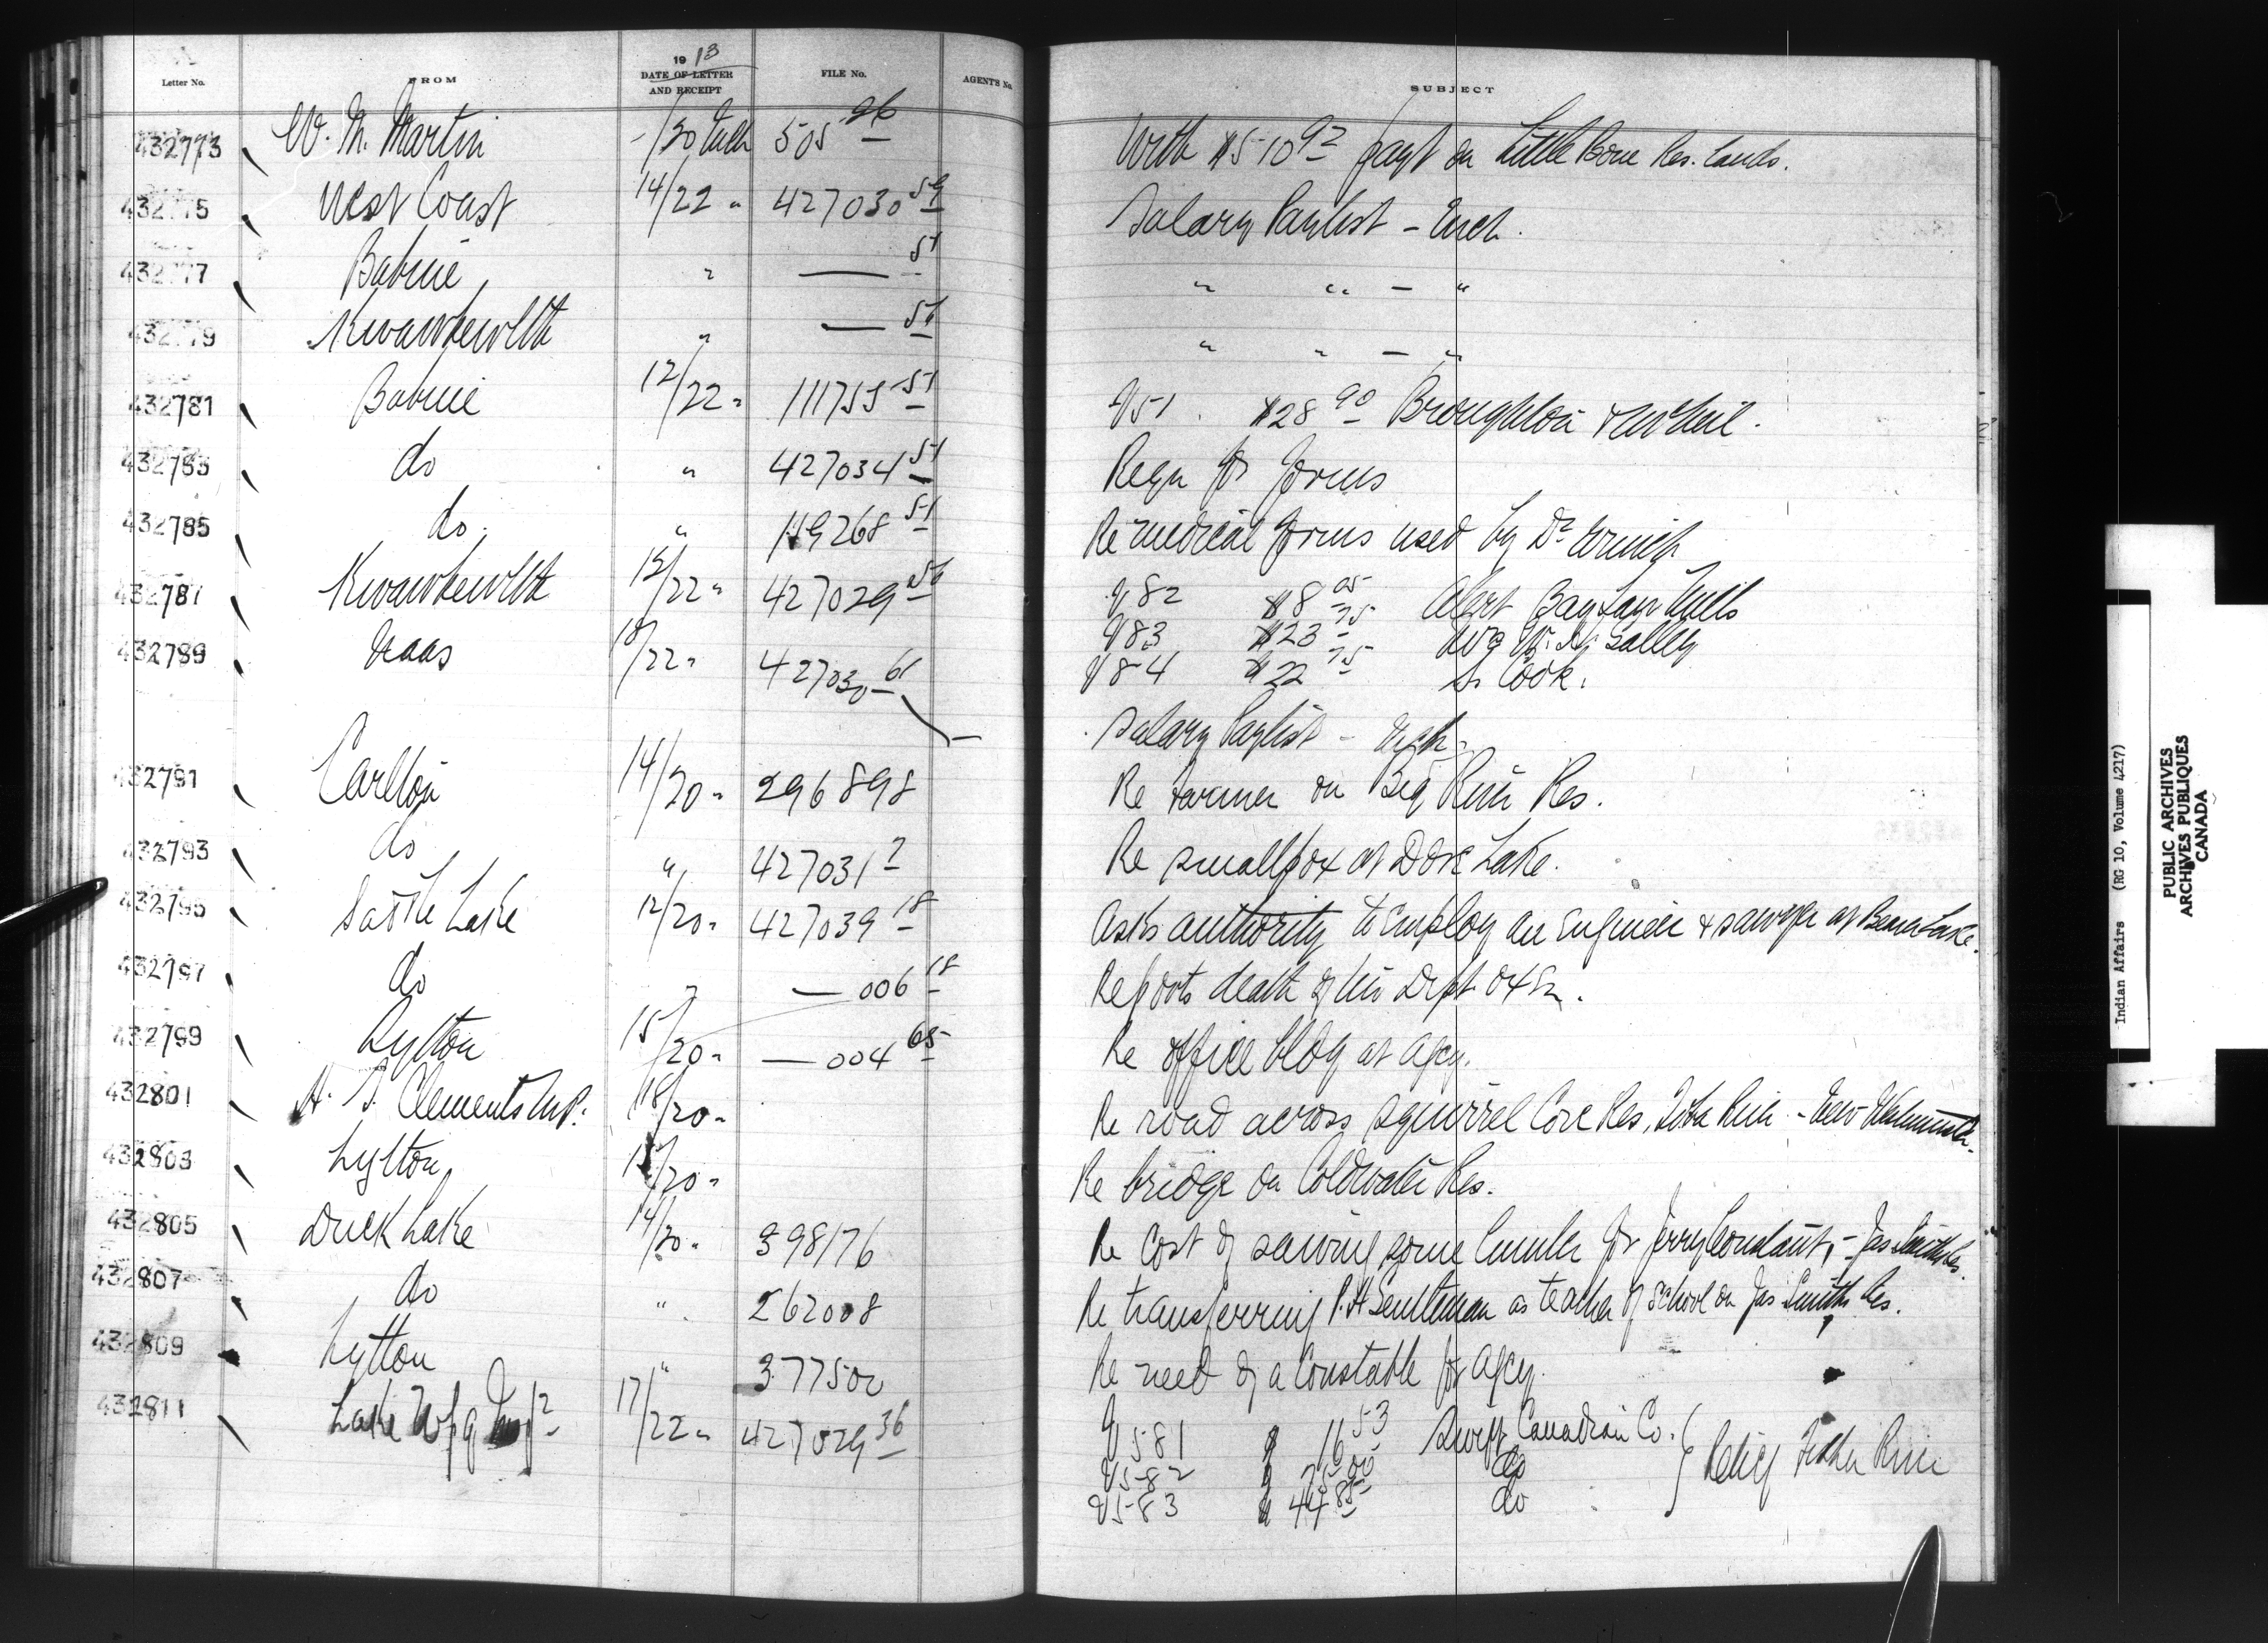 Letter No. FROM 1913 DATE OF LETTER AND RECEIPT FILE No. AGENTS No. SUBJECT
432773 W. M. Martin -/20 505 26 With $510 92 payt on Little Bone Res. lands.
432775 West Coast 14/22 " 427030 59 Salary Paylist -
432777 Babine " — 51 " " — "
432779 Kwawkewlth " — 56 " " — "
432781 Babine 12/22 " 111755 51 V51. $28 90 Broughton & McNeil.
432783 do " 427034 51 Reqn for forms
432785 do. " 119268 51 Re medical forms used by Dr
432787 Kwawkewlth 12/22 " 427029 56 V82 $8 05 Alert Bay Mills
V83 $23 75
V84 $22 75 S. Cook.
432789 Naas 18/22 " 427030 61 Salary Paylist -
432791 Carlton 14/20 " 296898 Re Farmer on Big River Res.
432793 do " 427031 2 Re smallpox at Dore Lake.
432795 Saddle Lake 12/20 " 427039 18 Asks authority to Employ an Engineer & sawyer at Beaver Lake.
432797 do " — 006 18 Reports death of Dept ox
432799 Lytton 15/20 " — 004 65 Re office bldg at Agcy.
432801 H. S. Clements M.P. 18/20 " Re road across Squirrel Cove Res, Toba River - New Westminster.
432803 Lytton /20 " Re bridge on Coldwater Res.
432805 Duck Lake 14/20 " 398176 Re cost of sawing some lumber for Jerry Constant, - Jas Smith Res.
432807 do " 262008 Re transferring as teacher of school on Jas Smith's Res.
432809 Lytton " 377500 Re need of a Constable for Agcy.
432811 Lake Wpg 17/22 " 427029 36 V581 $ 16 53 Swift Canadian Co.
V582 $ 75 00 do } Relief Fisher River
V583 $ 44 85 do
Indian Affairs (RG 10, Volume 4217)
PUBLIC ARCHIVES
ARCHIVES PUBLIQUES
CANADA